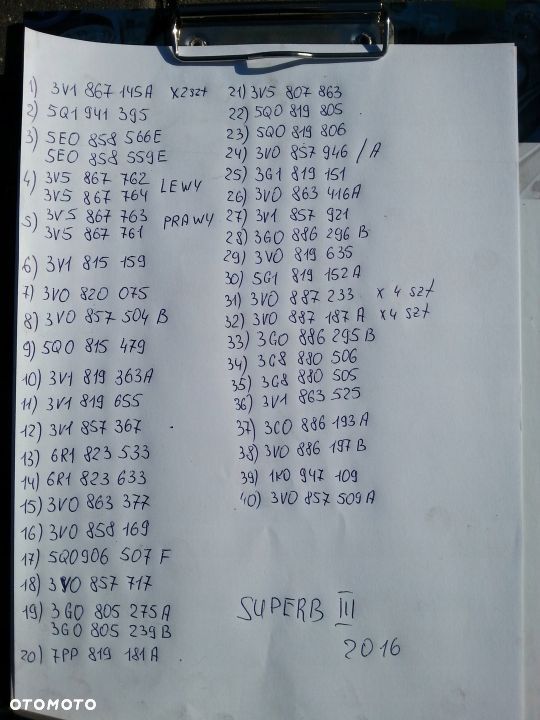 1) 3V1 867 145A x2szt
2) 5Q1 941 395
3) 5E0 858 566E
5E0 858 559E
4) 3V5 867 762
3V5 867 764 LEWY
5) 3V5 867 763
3V5 867 761 PRAWY
6) 3V1 815 159
7) 3V0 820 075
8) 3V0 857 504 B
9) 5Q0 815 479
10) 3V1 819 363A
11) 3V1 819 655
12) 3V1 857 367
13) 6R1 823 533
14) 6R1 823 633
15) 3V0 863 377
16) 3V0 858 169
17) 5Q0906 507 F
18) 3V0 857 717
19) 3G0 805 275A
3G0 805 239B
20) 7PP 819 181A
21) 3V5 807 863
22) 5Q0 819 805
23) 5Q0 819 806
24) 3V0 857 946 /A
25) 3G1 819 151
26) 3V0 863 416A
27) 3V1 857 921
28) 3G0 886 296 B
29) 3V0 819 635
30) 5G1 819 152A
31) 3V0 887 233 x 4 szt
32) 3V0 887 187 A x 4 szt
33) 3G0 886 295B
34) 3G8 880 506
35) 3G8 880 505
36) 3V1 863 525
37) 3C0 886 193A
38) 3V0 886 197B
39) 1K0 947 109
40) 3V0 857 509A
SUPERB III
2016
OTOMOTO